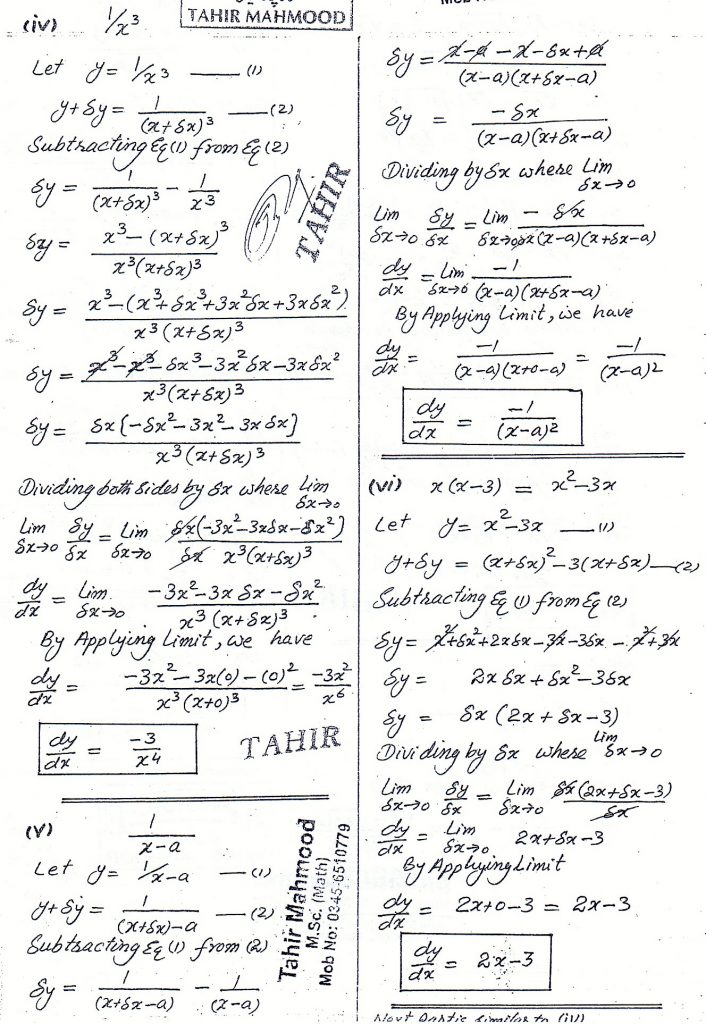 TAHIR MAHMOOD
(iv) 1/x³
Let y = 1/x³ —— (1)
y+δy = 1/(x+δx)³ —— (2)
Subtracting Eq (1) from Eq (2)
δy = 1/(x+δx)³ - 1/x³
δy = x³-(x+δx)³ / x³(x+δx)³
δy = x³-(x³+δx³+3x²δx+3xδx²) / x³(x+δx)³
δy = x³-x³-δx³-3x²δx-3xδx² / x³(x+δx)³
δy = δx[-δx²-3x²-3xδx] / x³(x+δx)³
TAHIR
Dividing both sides by δx where Lim δx→0
Lim δx→0 δy/δx = Lim δx→0 δx(-3x²-3xδx-δx²) / δx x³(x+δx)³
dy/dx = Lim δx→0 -3x²-3xδx-δx² / x³(x+δx)³
By Applying Limit, we have
dy/dx = -3x²-3x(0)-(0)² / x³(x+0)³ = -3x²/x⁶
dy/dx = -3/x⁴
TAHIR
(v) 1/x-a
Let y = 1/x-a —— (1)
y+δy = 1/(x+δx)-a —— (2)
Subtracting Eq (1) from (2)
δy = 1/(x+δx-a) - 1/(x-a)
Tahir Mahmood
M.Sc. (Math)
Mob No: 0345-6510779
δy = x-a-x-δx+a / (x-a)(x+δx-a)
δy = -δx / (x-a)(x+δx-a)
Dividing by δx where Lim δx→0
Lim δx→0 δy/δx = Lim δx→0 -δx / δx(x-a)(x+δx-a)
dy/dx = Lim δx→0 -1 / (x-a)(x+δx-a)
By Applying Limit, we have
dy/dx = -1/(x-a)(x+0-a) = -1/(x-a)²
dy/dx = -1/(x-a)²
(vi) x(x-3) = x²-3x
Let y = x²-3x —— (1)
y+δy = (x+δx)²-3(x+δx) —— (2)
Subtracting Eq (1) from Eq (2)
δy = x²+δx²+2xδx-3x-3δx - x²+3x
δy = 2xδx+δx²-3δx
δy = δx(2x+δx-3)
Dividing by δx where Lim δx→0
Lim δx→0 δy/δx = Lim δx→0 δx(2x+δx-3) / δx
dy/dx = Lim δx→0 2x+δx-3
By Applying Limit
dy/dx = 2x+0-3 = 2x-3
dy/dx = 2x-3
Next Part is similar to (iv)